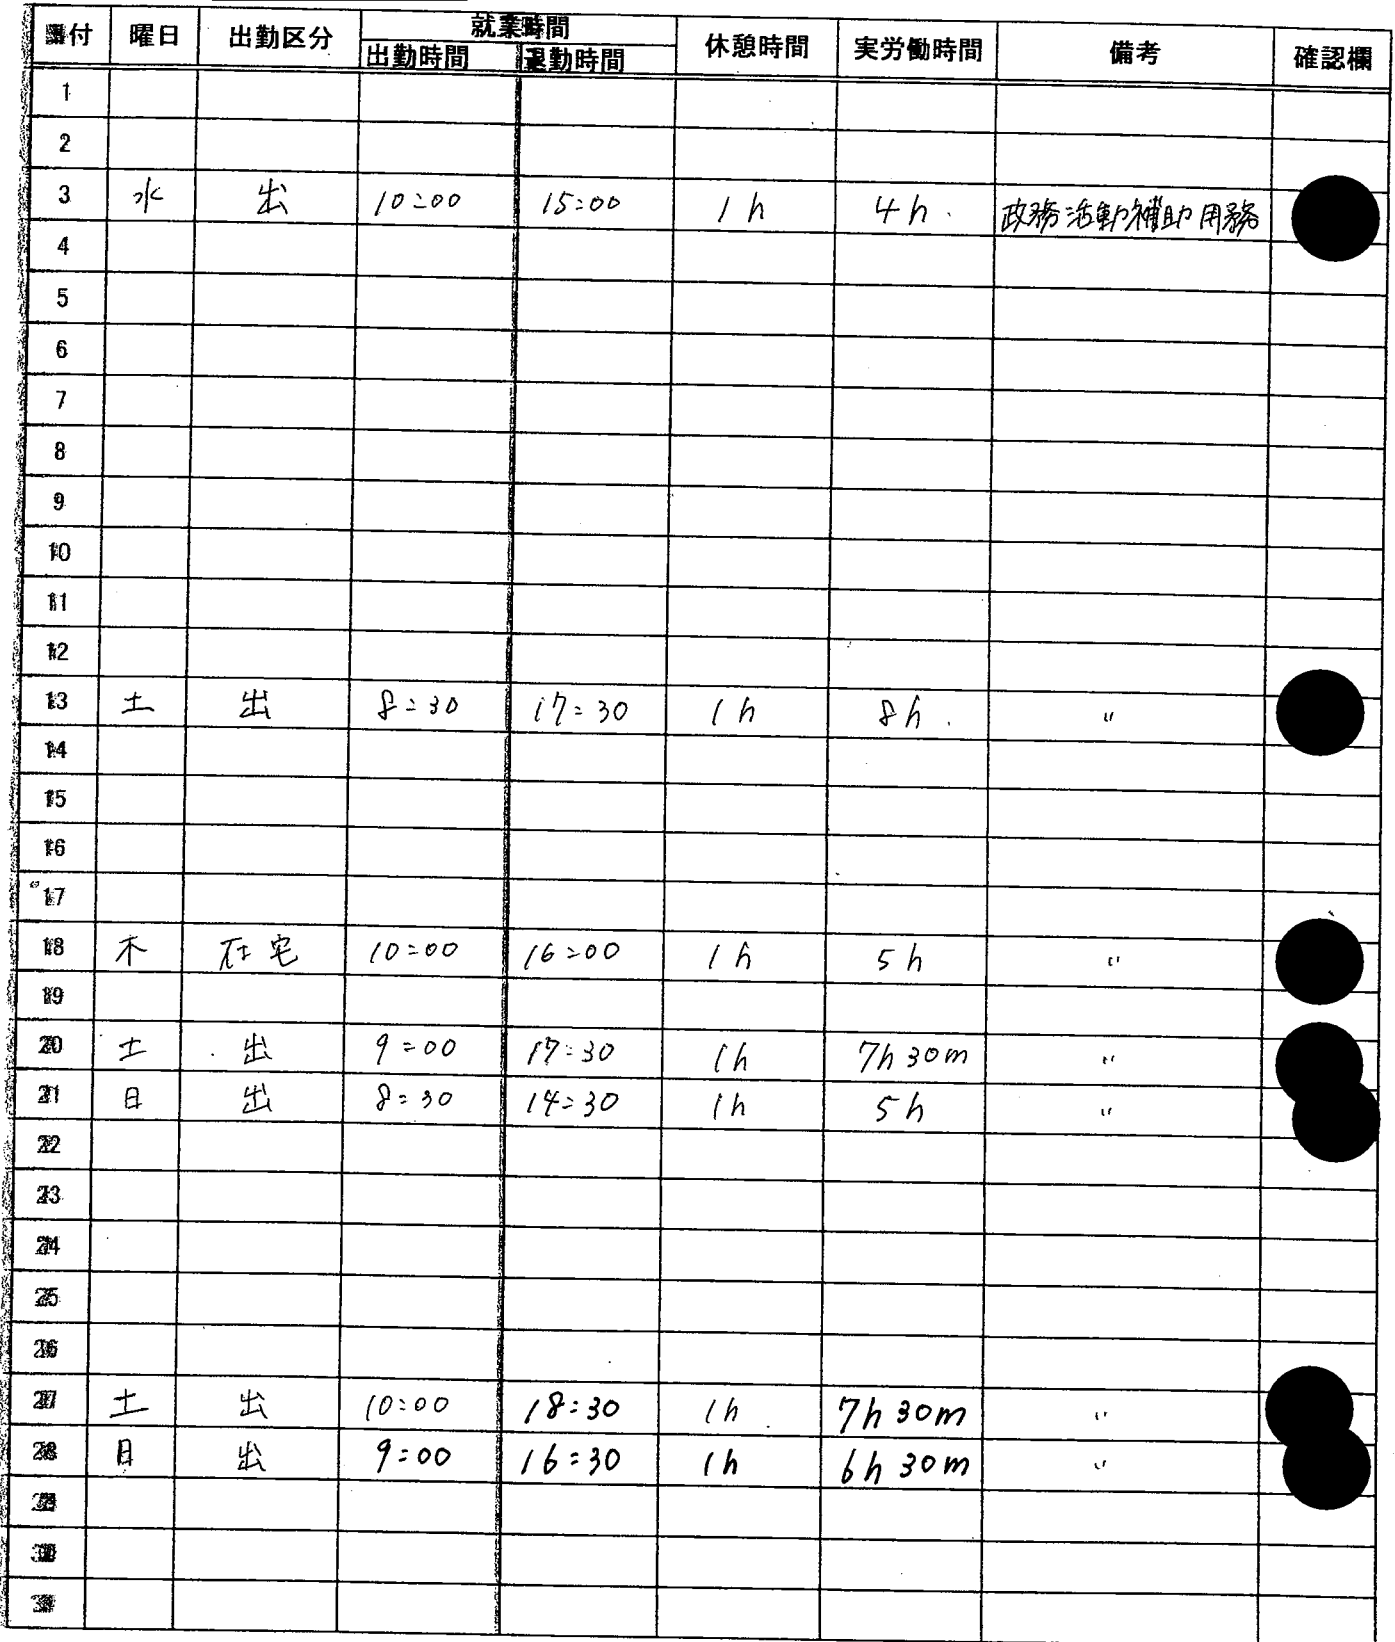 日付 曜日 出勤区分 就業時間 休憩時間 実労働時間 備考 確認欄
出勤時間 退勤時間
1
2
3 水 出 10:00 15:00 1h 4h. 政務活動補助用務
4
5
6
7
8
9
10
11
12
13 土 出 8:30 17:30 1h 8h. 〃
14
15
16
17
18 木 在宅 10:00 16:00 1h 5h 〃
19
20 土 出 9:00 17:30 1h 7h30m 〃
21 日 出 8:30 14:30 1h 5h 〃
22
23
24
25
26
27 土 出 10:00 18:30 1h 7h30m 〃
28 日 出 9:00 16:30 1h 6h30m 〃
29
30
31